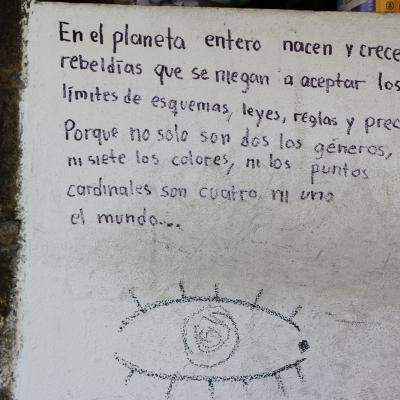 En el planeta entero nacen y crece
rebeldías que se niegan a aceptar los
límites de esquemas, leyes, reglas y prec
Porque no solo son dos los géneros,
ni siete los colores, ni los puntos
cardinales son cuatro, ni uno
el mundo...